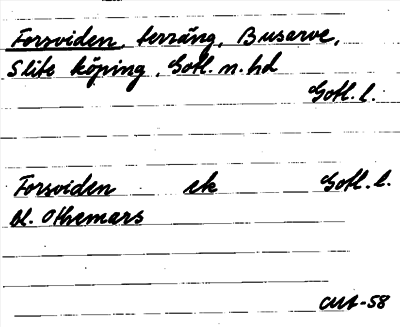 Forsviden, terräng, Buserve,
Slite köping, Gotl. n. hd
Gotl. l.
Forsviden ek Gotl. l.
bl. Othemars
CMA-58